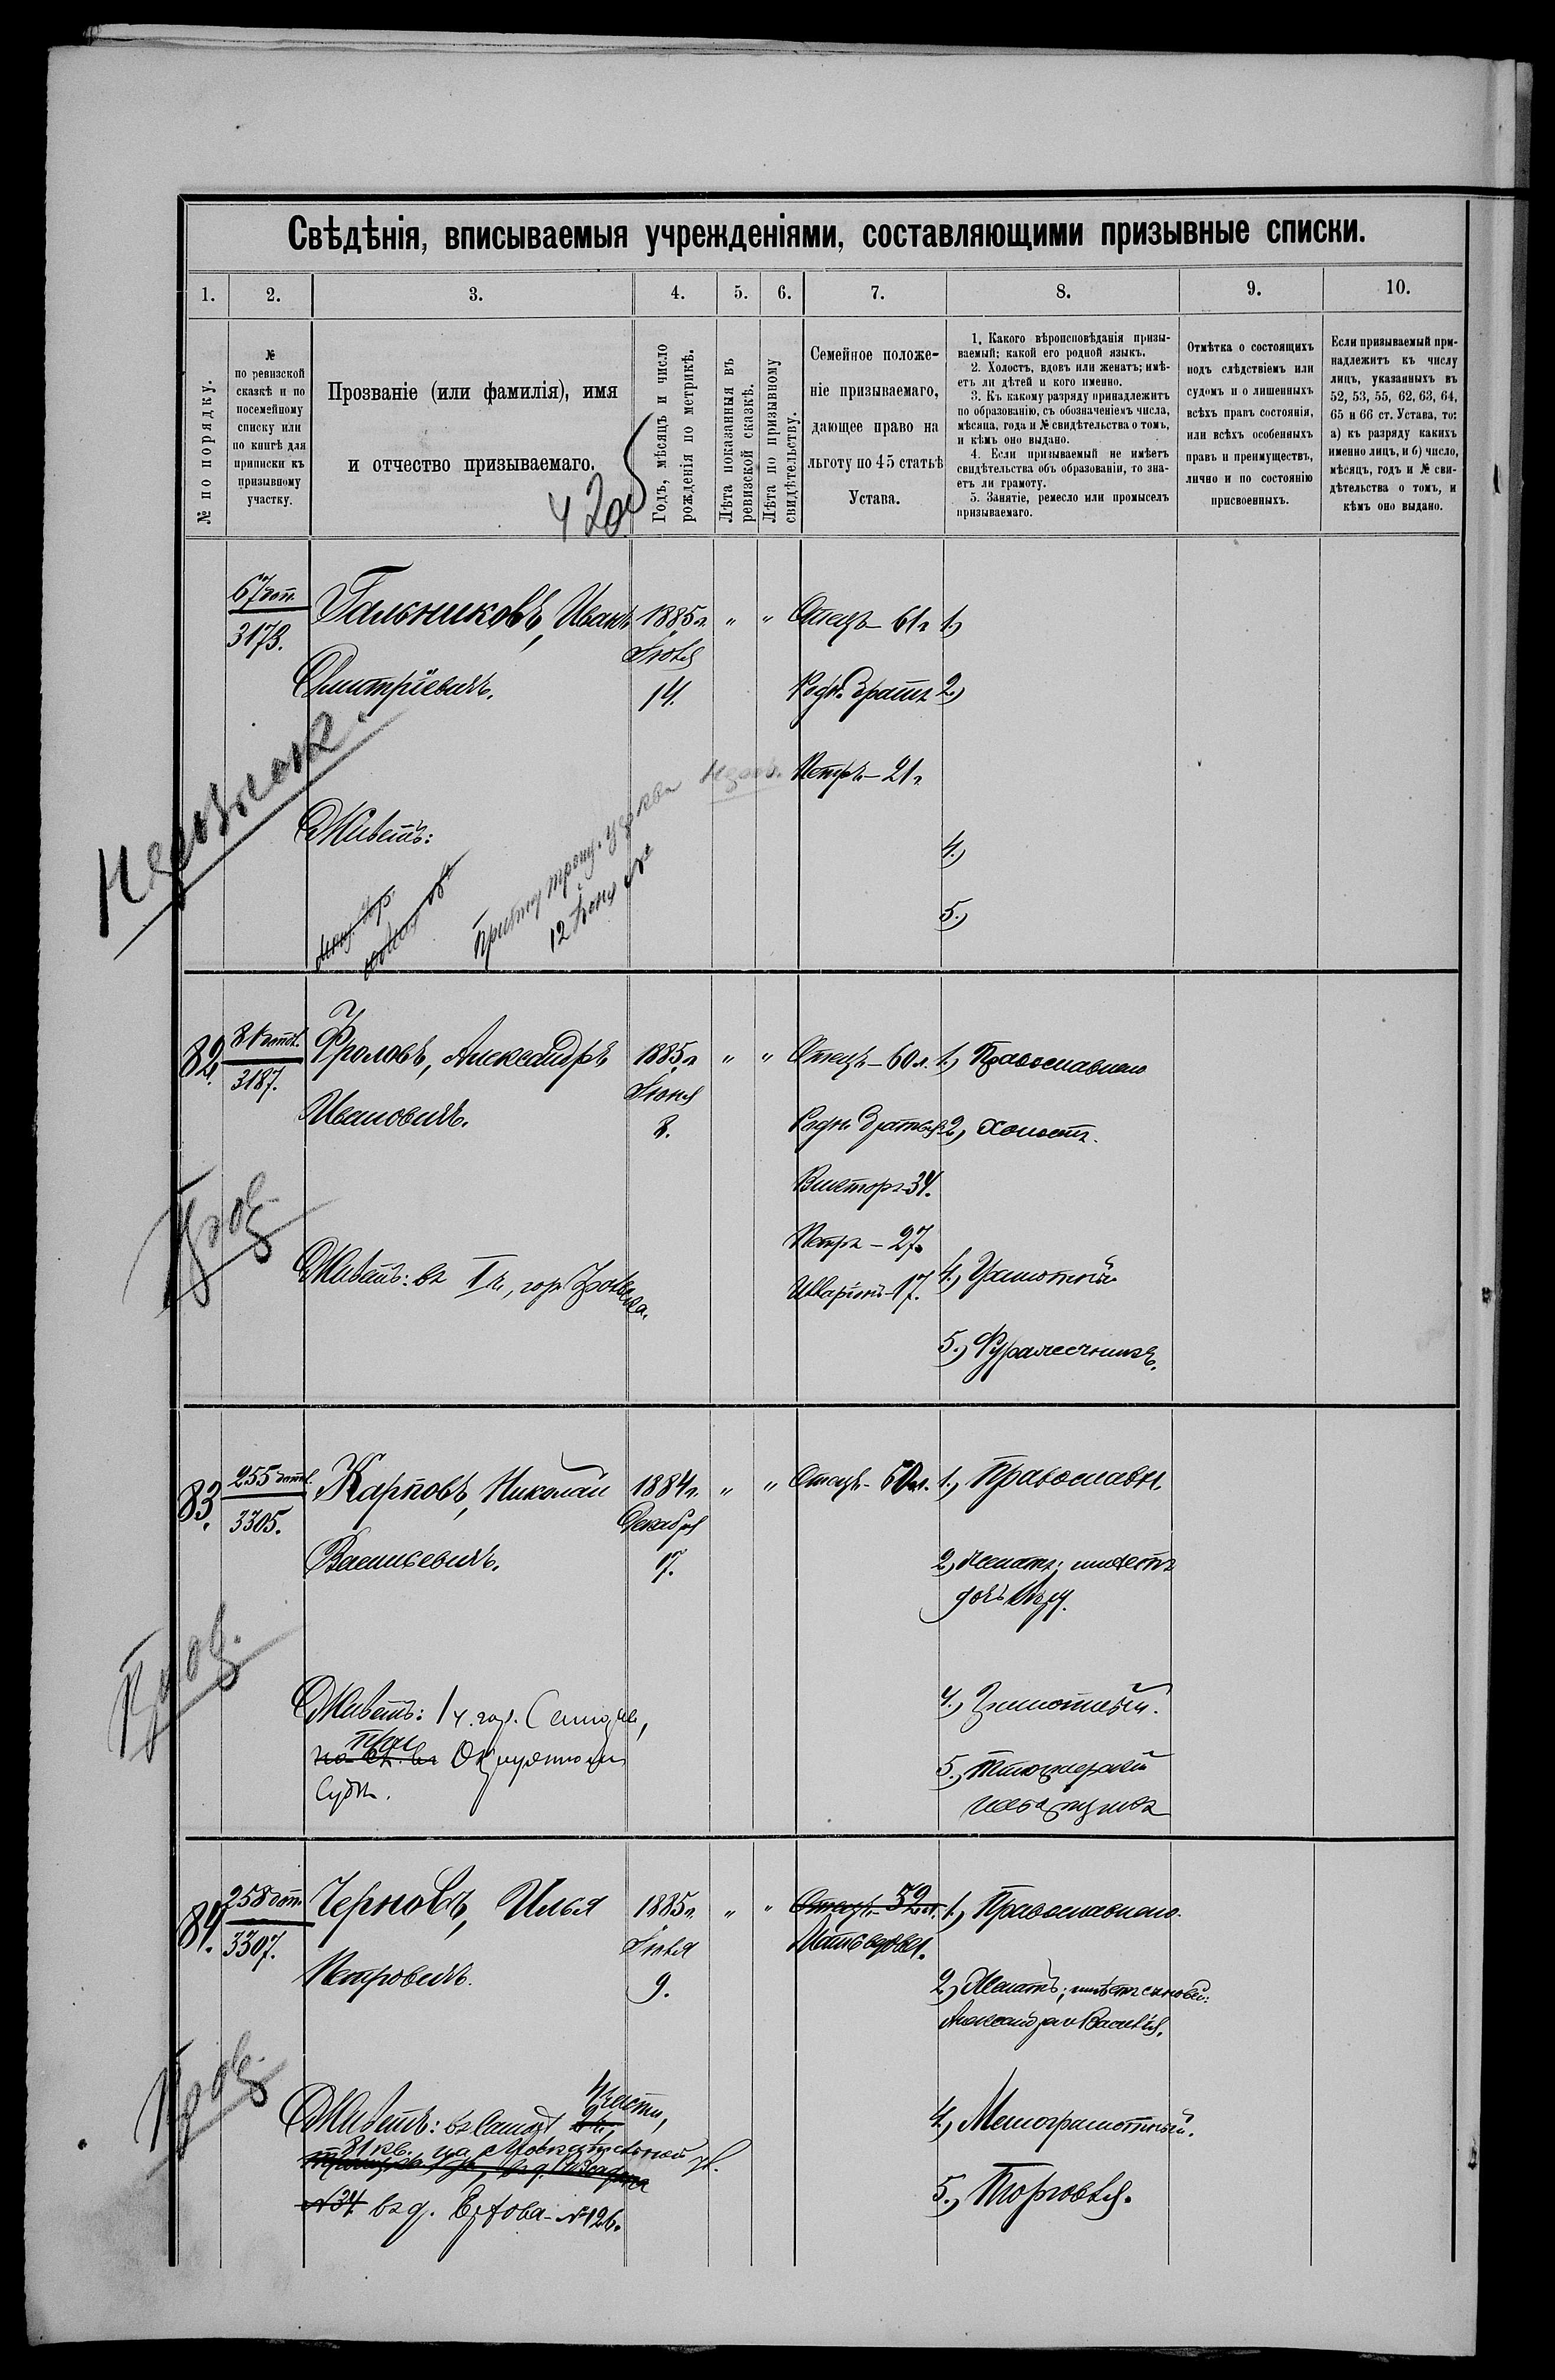 Свѣдѣнія, вписываемыя учрежденіями, составляющими призывные списки.
1.
2.
3.
4.
5.
6.
7.
8.
9.
10.
№ по порядку.
№
по ревизской
сказкѣ и по
посемейному
списку или
по книгѣ для
приписки къ
призывному
участку.
Прозваніе (или фамилія), имя
и отчество призываемаго.
Годъ, мѣсяцъ и число
рожденія по метрикѣ.
Лѣта показанныя въ
ревизской сказкѣ.
Лѣта по призывному
свидѣтельству.
Семейное положе-
ніе призываемаго,
дающее право на
льготу по 45 статьѣ
Устава.
1. Какого вѣроисповѣданія призы-
ваемый; какой его родной языкъ.
2. Холостъ, вдовъ или женатъ; имѣ-
етъ ли дѣтей и кого именно.
3. Къ какому разряду принадлежитъ
по образованію, съ обозначеніемъ числа,
мѣсяца, года и № свидѣтельства о томъ,
и кѣмъ оно выдано.
4. Если призываемый не имѣетъ
свидѣтельства объ образованіи, то зна-
етъ ли грамоту.
5. Занятіе, ремесло или промыселъ
призываемаго.
Отмѣтка о состоящихъ
подъ слѣдствіемъ или
судомъ и о лишенныхъ
всѣхъ правъ состоянія,
или всѣхъ особенныхъ
правъ и преимуществъ,
лично и по состоянію
присвоенныхъ.
Если призываемый при-
надлежитъ къ числу
лицъ, указанныхъ въ
52, 53, 55, 62, 63, 64,
65 и 66 ст. Устава, то:
а) къ разряду какихъ
именно лицъ, и б) число,
мѣсяцъ, годъ и № сви-
дѣтельства о томъ, и
кѣмъ оно выдано.
67 доп.
3173.
Гальниковъ, Иванъ
Дмитріевичъ.
1885 г.
Іюля
14.
" "
Отецъ - 61 г
Родн. братъ
Петръ - 21 г
1.)
2.)
4.)
5.)
Живетъ:
82.
81 доп.
3187.
Фроловъ, Александръ
Ивановичъ.
1885 г.
Іюня
8.
" "
Отецъ - 60 л.
Родн. братья
Викторъ 34.
Петръ - 27.
Иларіонъ - 17.
1.) Православнаго
2.) Холостъ.
4.) Грамотный
5.)
Живетъ: въ I ч., гор.
83.
255 доп.
3305.
Карповъ, Николай
Васильевичъ.
1884 г.
Декабря
7.
" "
Отецъ - 60 л.
1.) Православн.
2.) Женатъ; имѣетъ
дочь
4.) Грамотный.
5.)
Живетъ: 1 ч. гор.
при Окружномъ
Судѣ.
84.
258 доп.
3307.
Черновъ, Илья
Петровичъ.
1885 г.
Іюля
9.
" "
Отецъ - 52 л.
Мать вдова.
1.) Православнаго.
2.) Женатъ; имѣетъ сыновей:
Александра и Василія.
4.) Малограмотный.
5.) Торговля.
Живетъ: въ
части,
81 кв. на
№ 34 въ д. № 126.